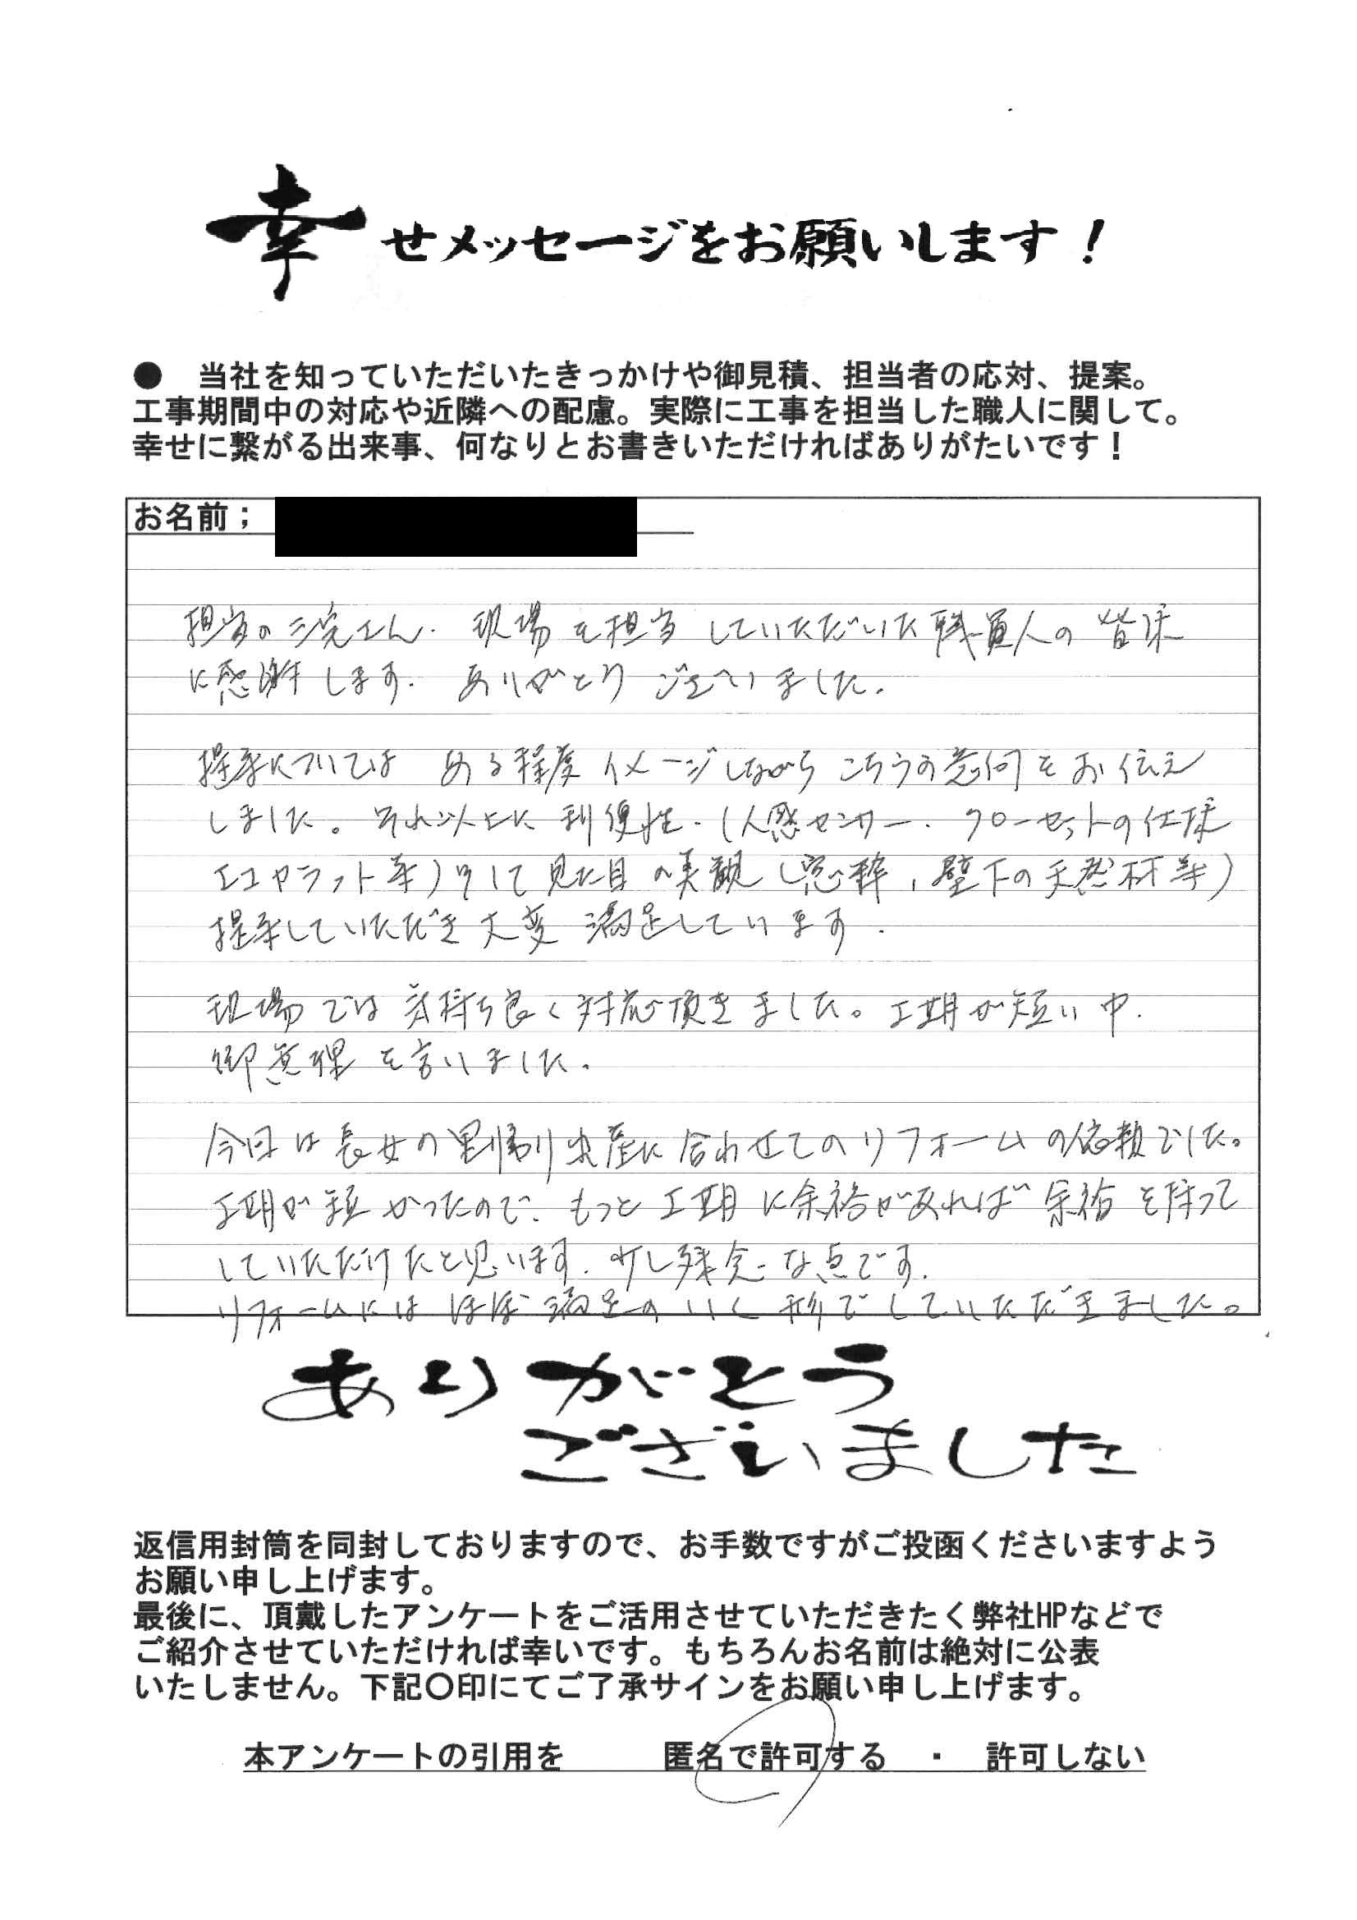 幸せメッセージをお願いします!
● 当社を知っていただいたきっかけや御見積、担当者の応対、提案。
工事期間中の対応や近隣への配慮。実際に工事を担当した職人に関して。
幸せに繋がる出来事、何なりとお書きいただければありがたいです!
お名前;
担当の三宅さん. 現場を担当していただいた職人の皆様
に感謝します. ありがとうございました.
提案については ある程度イメージしながら こちらの意向をお伝え
しました。それ以上に利便性.(人感センサー. クローゼットの仕様
エコカラット等)そして見た目の美観(窓枠,壁下の天然材等)
提案していただき大変満足しています.
現場では気持ち良く対応頂きました。工期が短い中.
御無理を言いました.
今回は長女の里帰り出産に合わせてのリフォームの依頼でした。
工期が短かったので、もっと工期に余裕があれば余裕を持って
していただけたと思います. 少し残念な点です.
リフォームにはほぼ満足のいく形でしていただきました。
ありがとう
ございました
返信用封筒を同封しておりますので、お手数ですがご投函くださいますよう
お願い申し上げます。
最後に、頂戴したアンケートをご活用させていただきたく弊社HPなどで
ご紹介させていただければ幸いです。もちろんお名前は絶対に公表
いたしません。下記〇印にてご了承サインをお願い申し上げます。
本アンケートの引用を 匿名で許可する ・ 許可しない